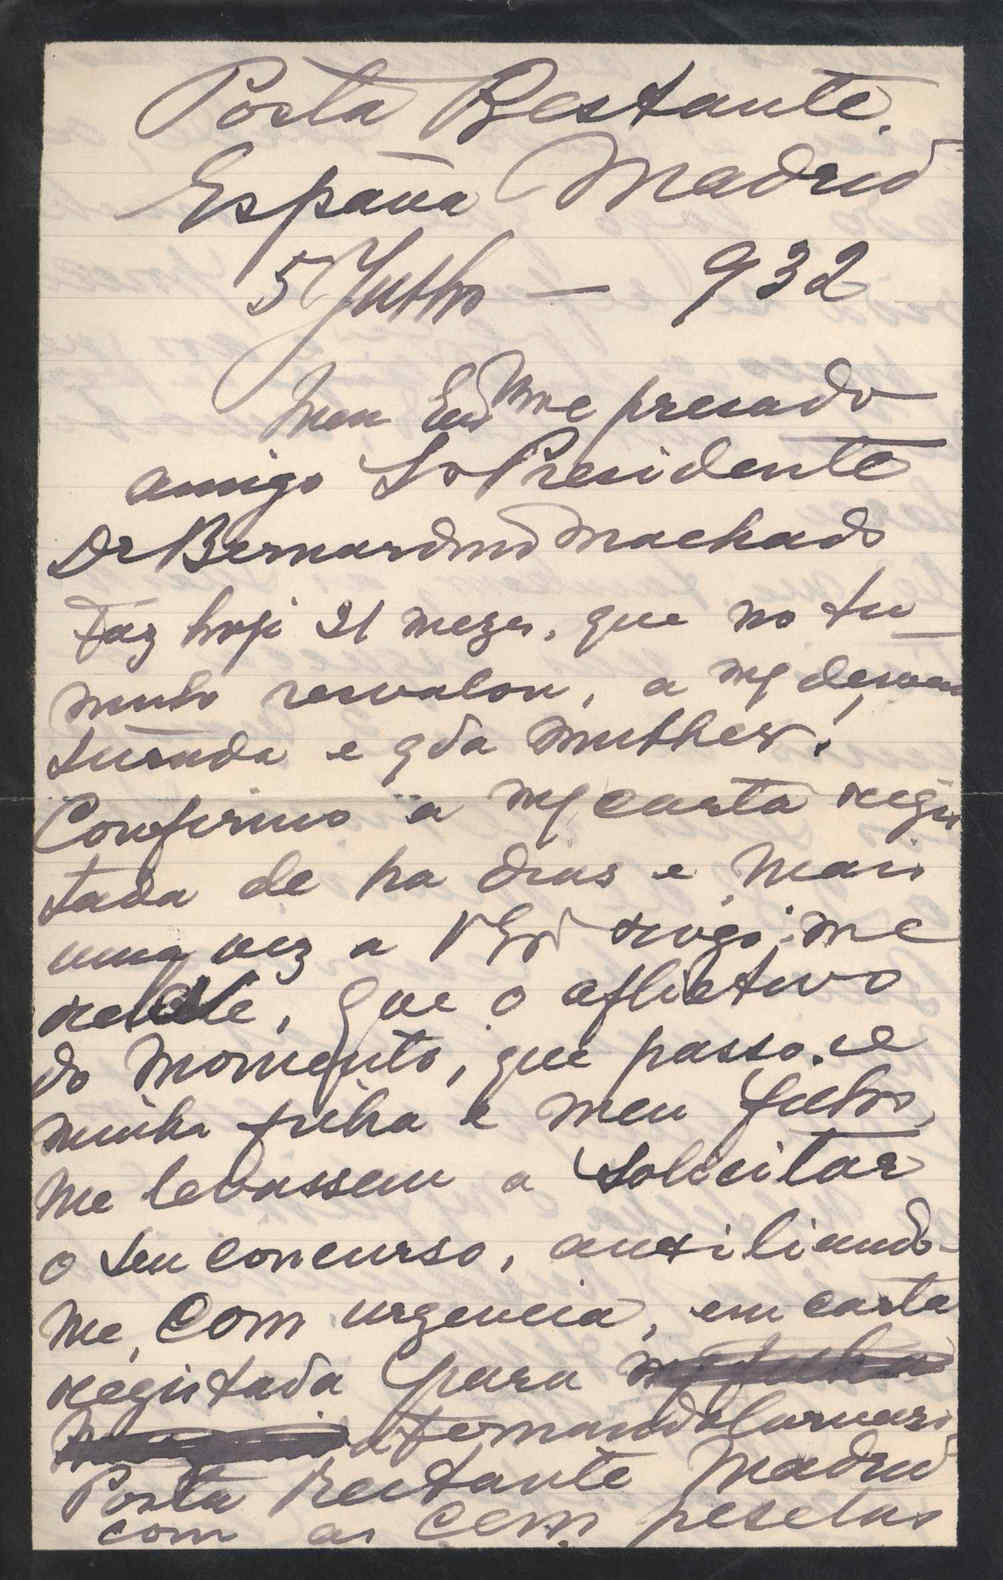 Posta Restante.
España Madrid
5 Julho — 932
Meu Exmo e presado
amigo Sr Presidente
Dr Bernardino Machado
Faz hoje 21 mezes, que no tu
mulo resvalou, a mª desven
turada e qda mulher!
Confirmo a mª carta regis
tada de ha dias e mais
uma vez a V Exª rogo-me
releve, que o aflictivo
do momento, que passo e
minha filha e meu filho,
me levassem a solicitar
o seu concurso, auxiliando-
me, com urgencia, em carta
registada para
Fernando
Posta Restante Madrid
com as cem pesetas